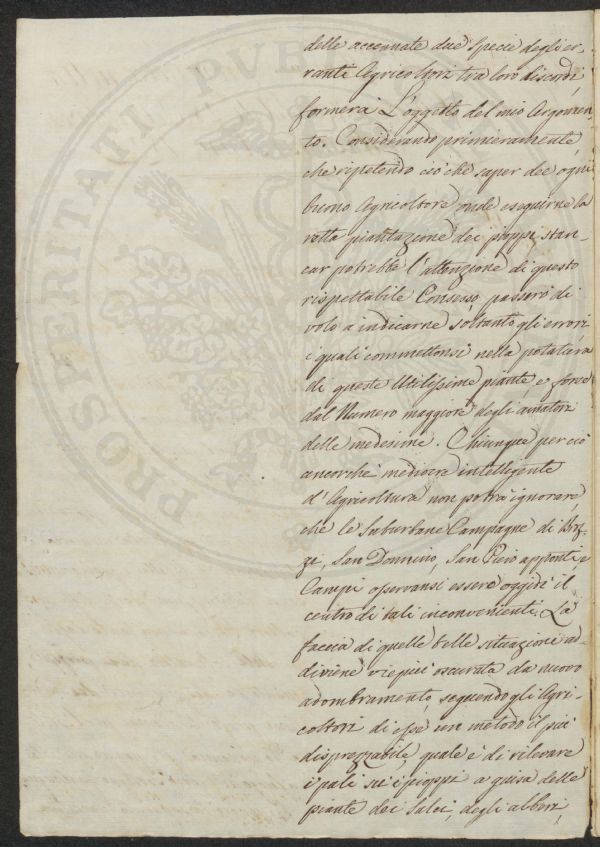 delle accennate due Specie degli er-
ranti Agricoltori tra loro discordi
formerà L'oggetto del mio Argomen-
to. Considerando primieramente,
che ripetendo ciò che saper dee ogni
buono Agricoltore onde eseguirne la
retta piantazione dei pioppi stan-
car potrebbe l'attenzione di questo
rispettabile Consesso, passerò di
volo a indicarne soltanto gli errori
i quali commettonsi nella potatura
di queste Utilissime piante, e forse
dal Numero maggiore degli amatori
delle medesime. Chiunque per ciò
ancorchè mediocre intelligente
d'Agricoltura non potrà ignorare,
che le Suburbane Campagne di Broz-
zi, San Donnino, San Piero apponti, e
Campi osservansi essere oggidì il
centro di tali inconvenienti. La
faccia di quelle belle situazioni ad-
diviene viepiù oscurata da nuovo
adombramento, seguendo gli Agri-
coltori di esse un metodo il più
disprezzabile quale è di rilevare
i pali su i pioppi a guisa delle
piante dei Salci, degli alberi,
PROSPERITATI PVBLICAE